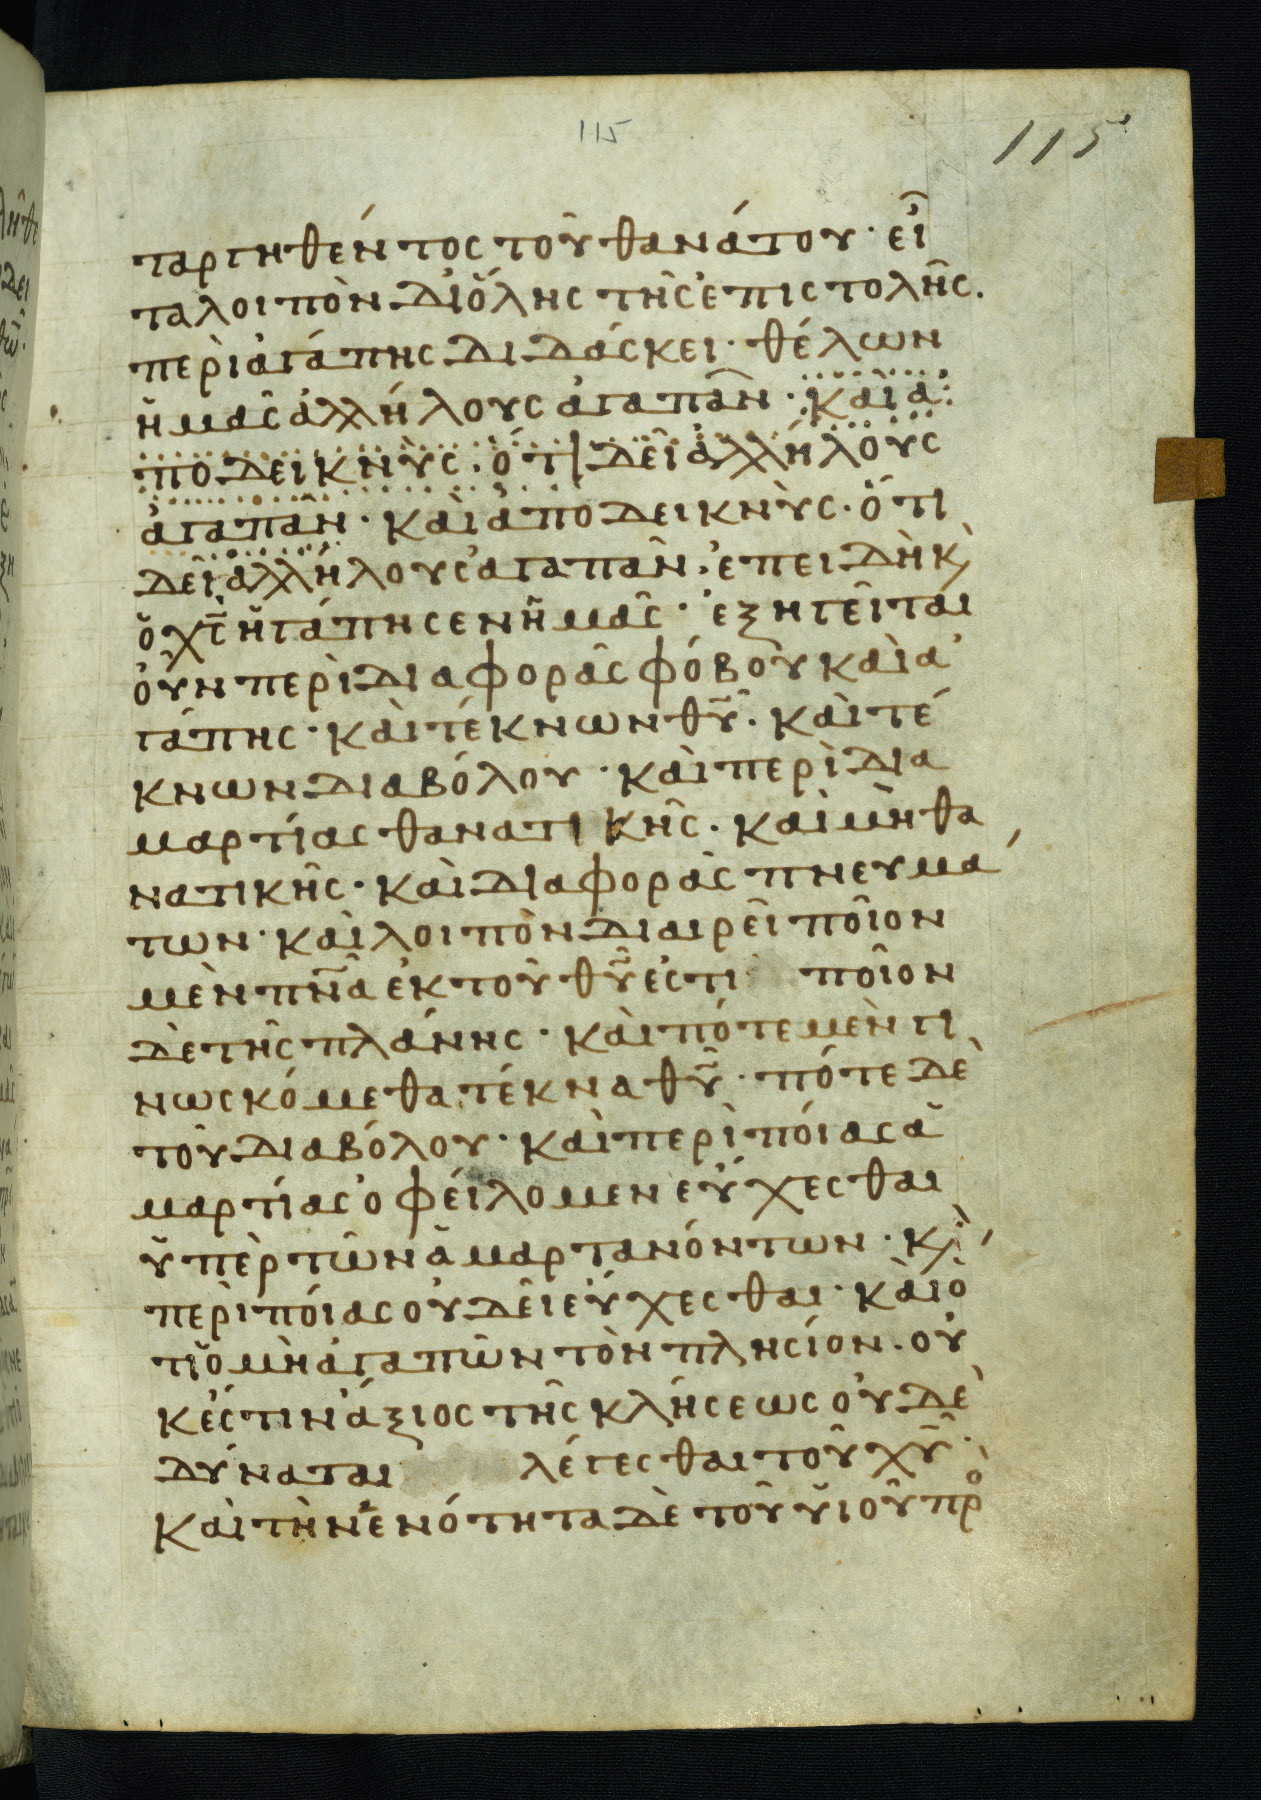 115
115
ταργηθέντος τοῦ θανάτου· εἶ
τα λοιπὸν δι' ὅλης τῆς ἐπιστολῆς.
περὶ ἀγάπης διδάσκει· θέλων
ἡμᾶς ἀλλήλους ἀγαπᾶν· καὶ ἀ
ποδεικνὺς· ὅτι δεῖ ἀλλήλους
ἀγαπᾶν· καὶ ἀποδεικνὺς· ὅτι
δεῖ ἀλλήλους ἀγαπᾶν· ἐπειδὴ κ,
ὁ χς ἠγάπησεν ἡμᾶς· ἐξηγεῖται
οὖν περὶ διαφορᾶς φόβου καὶ ἀ
γάπης· καὶ τέκνων θυ· καὶ τέ
κνων διαβόλου· καὶ περὶ δια
μαρτίας θανατικῆς· καὶ μὴ θα
νατικῆς· καὶ διαφορὰς πνευμά
των· καὶ λοιπὸν διαιρεῖ ποῖον
μὲν πνα ἐκ τοῦ θυ ἐστι ποῖον
δὲ τῆς πλάνης· καὶ πότε μὲν γι
νωσκόμεθα τέκνα θυ· πότε δὲ
τοῦ διαβόλου· καὶ περὶ ποίας ἁ
μαρτίας ὀφείλομεν εὔχεσθαι
ὑπὲρ τῶν ἁμαρτανόντων· κ,
περὶ ποίας οὐ δεῖ εὔχεσθαι· καὶ ὅ
τι ὁ μὴ ἀγαπῶν τὸν πλησίον· οὐ
κ ἔστιν ἄξιος τῆς κλήσεως οὐδὲ
δύναται λέγεσθαι τοῦ χυ·
καὶ τὴν ἑνότητα δὲ τοῦ υἱοῦ πρ